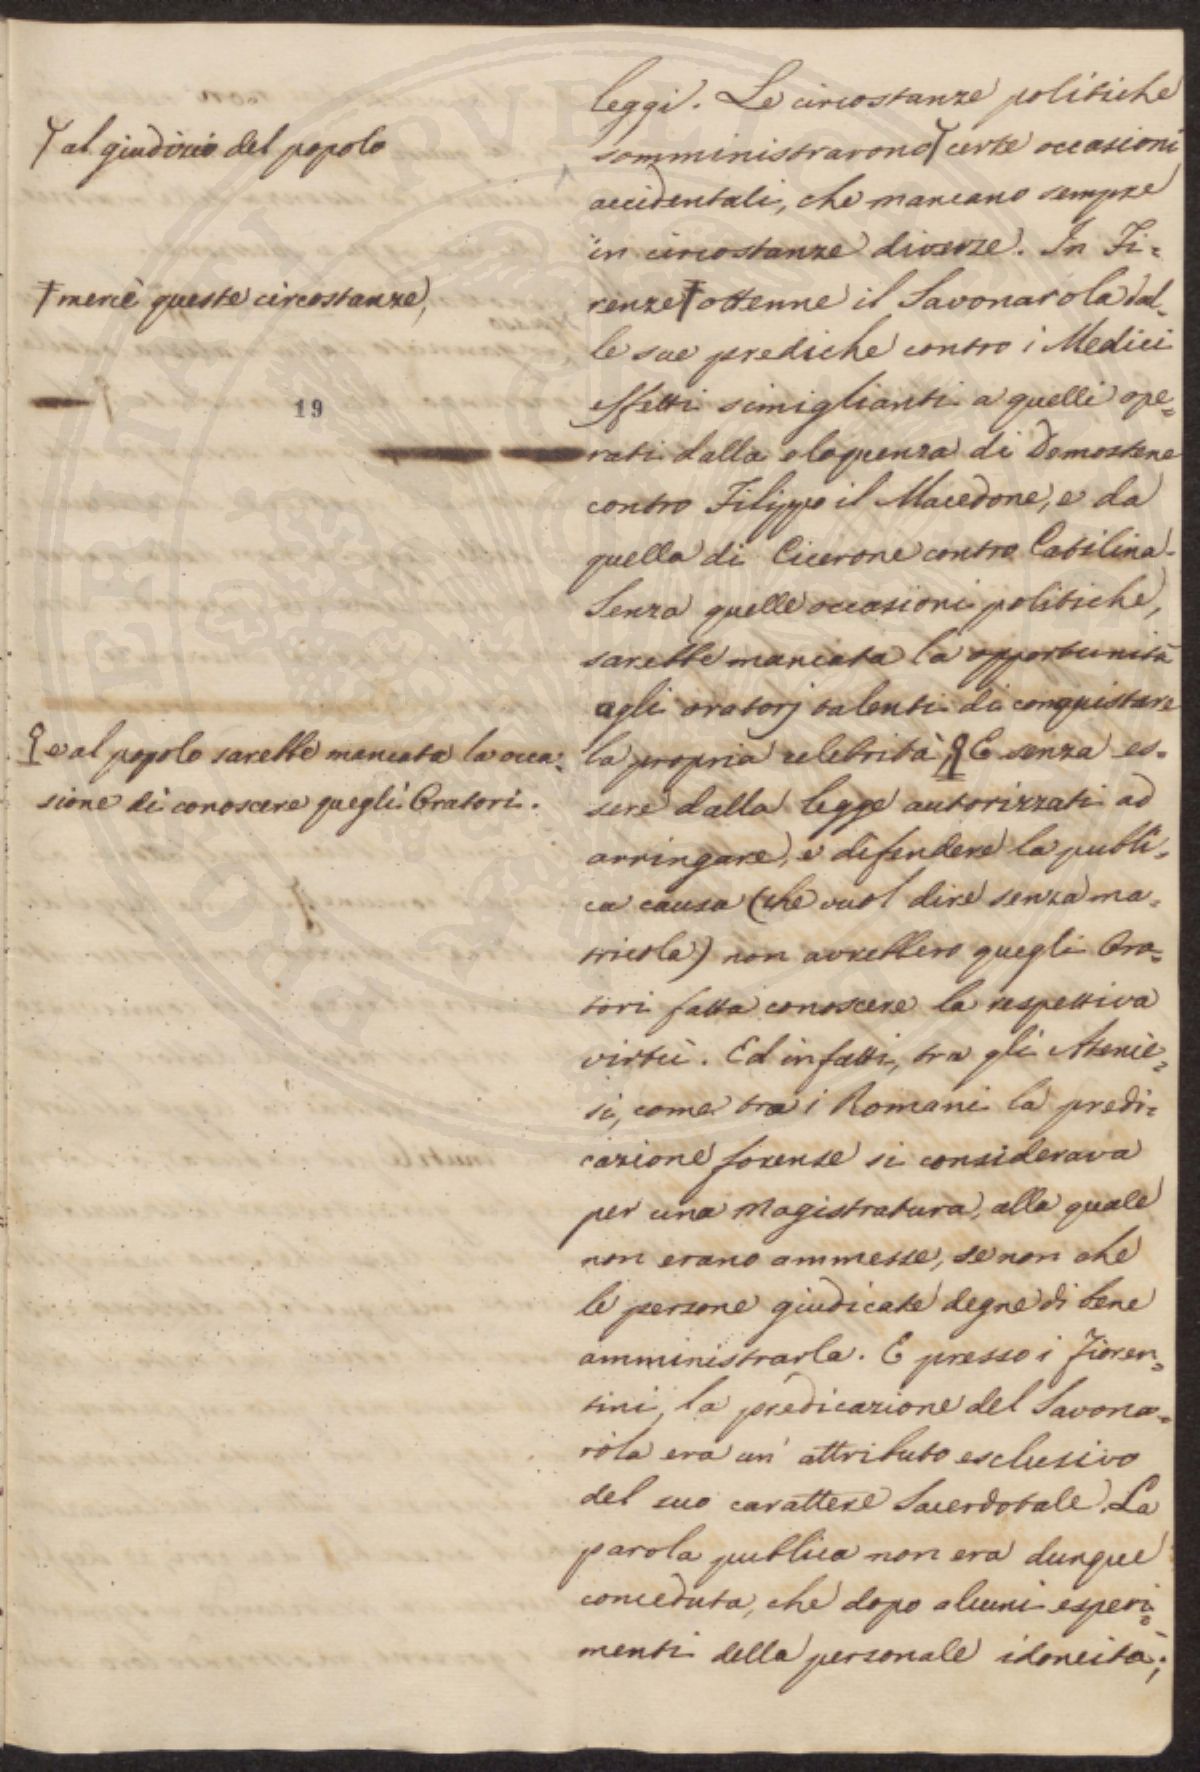 leggi. Le circostanze politiche
somministrarono certe occasioni
accidentali, che mancano sempre
in circostanze diverse. In Fi=
renze ottenne il Savonarola dal=
le sue prediche contro i Medici
effetti simiglianti a quelli ope=
rati dalla eloquenza di Demostene
contro Filippo il Macedone, e da
quella di Cicerone contro Catilina.
Senza quelle occasioni politiche,
sarebbe mancata la opportunità
agli oratorj talenti di conquistare
la propria celebrità; E senza es=
sere dalla legge autorizzati ad
arringare, e difendere la publi=
ca causa (che vuol dire senza ma=
tricola) non avrebbero quegli Ora=
tori fatta conoscere la respettiva
virtù. Ed infatti, tra gli Atenie=
si, come tra i Romani la predi=
cazione forense si considerava
per una Magistratura, alla quale
non erano ammesse, se non che
le persone giudicate degne di bene
amministrarla. E presso i Fioren=
tini, la predicazione del Savona=
rola era un' attributo esclusivo
del suo carattere Sacerdotale. La
parola publica non era dunque
conceduta, che dopo alcuni esperi=
menti della personale idoneità;
al giudizio del popolo
mercè queste circostanze,
19
e al popolo sarebbe mancata la occa=
sione di conoscere quegli Oratori.